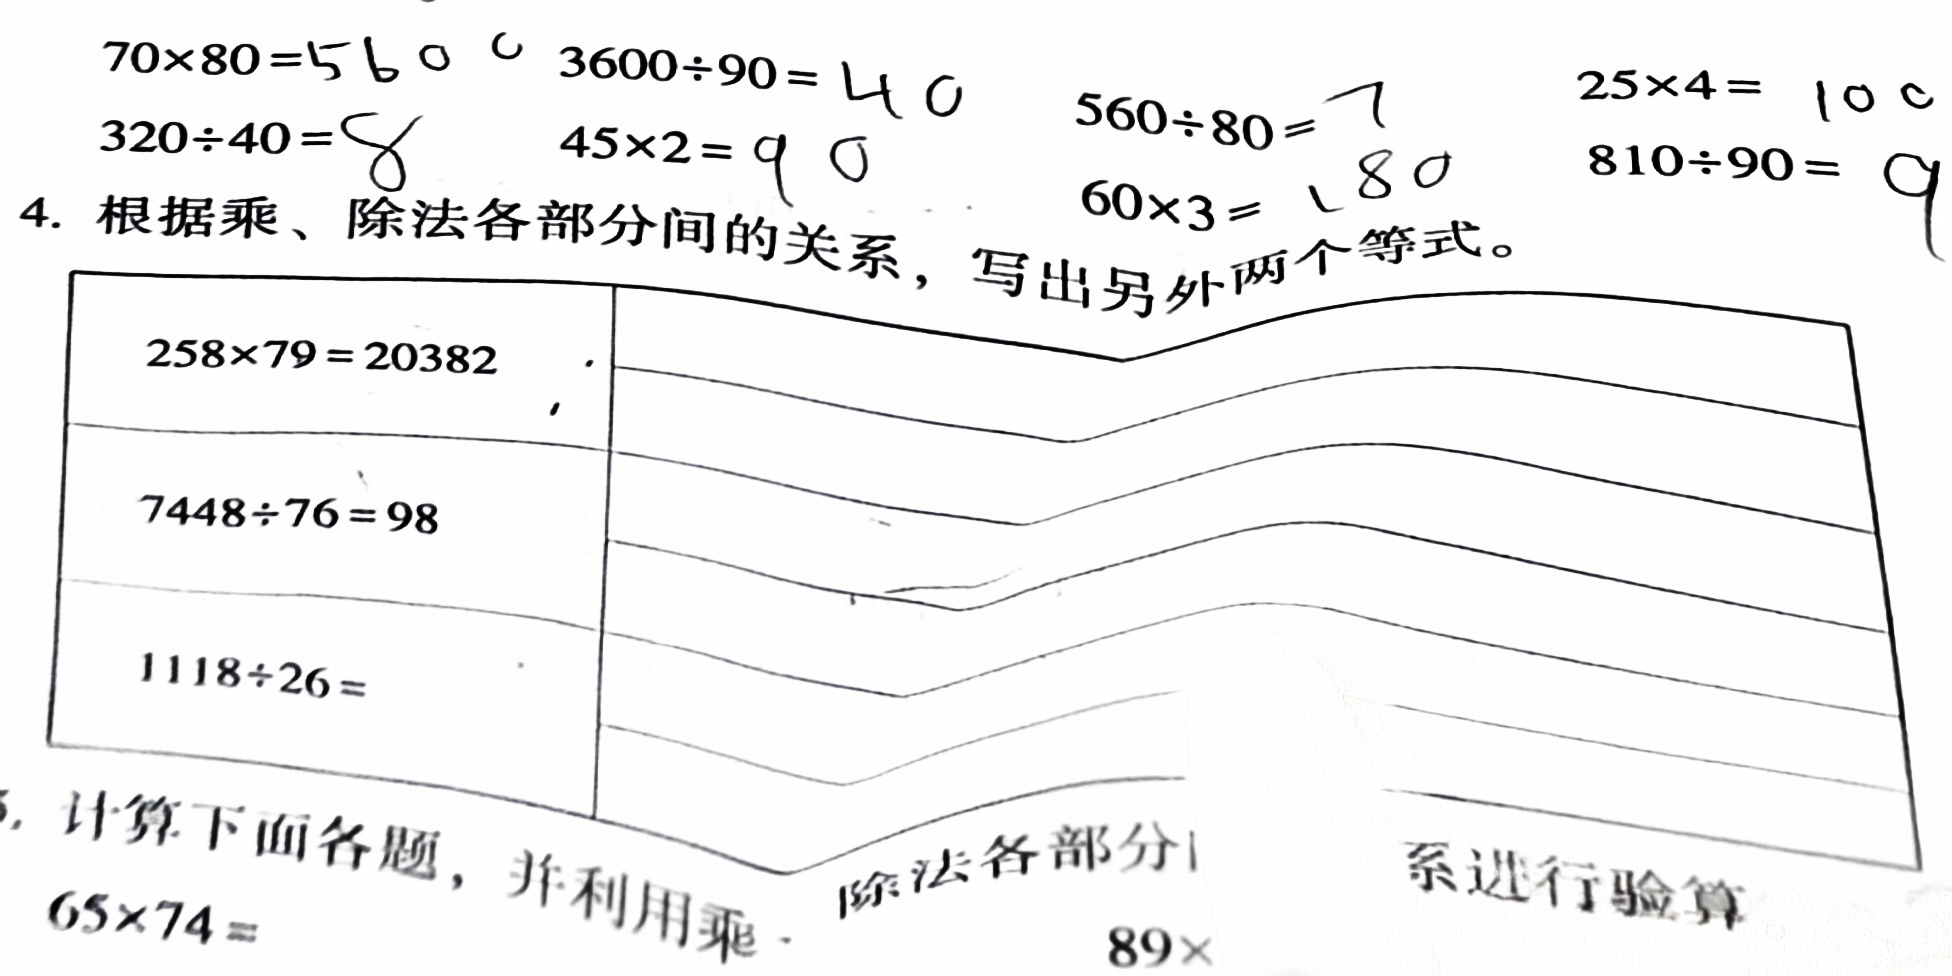 70×80=5600 3600÷90=40 560÷80=7 25×4=100
320÷40=8 45×2=90 60×3=180 810÷90=9
4. 根据乘、除法各部分间的关系，写出另外两个等式。
258×79=20382
7448÷76=98
1118÷26=
. 计算下面各题，并利用乘 除法各部分 系进行验算
65×74= 89×